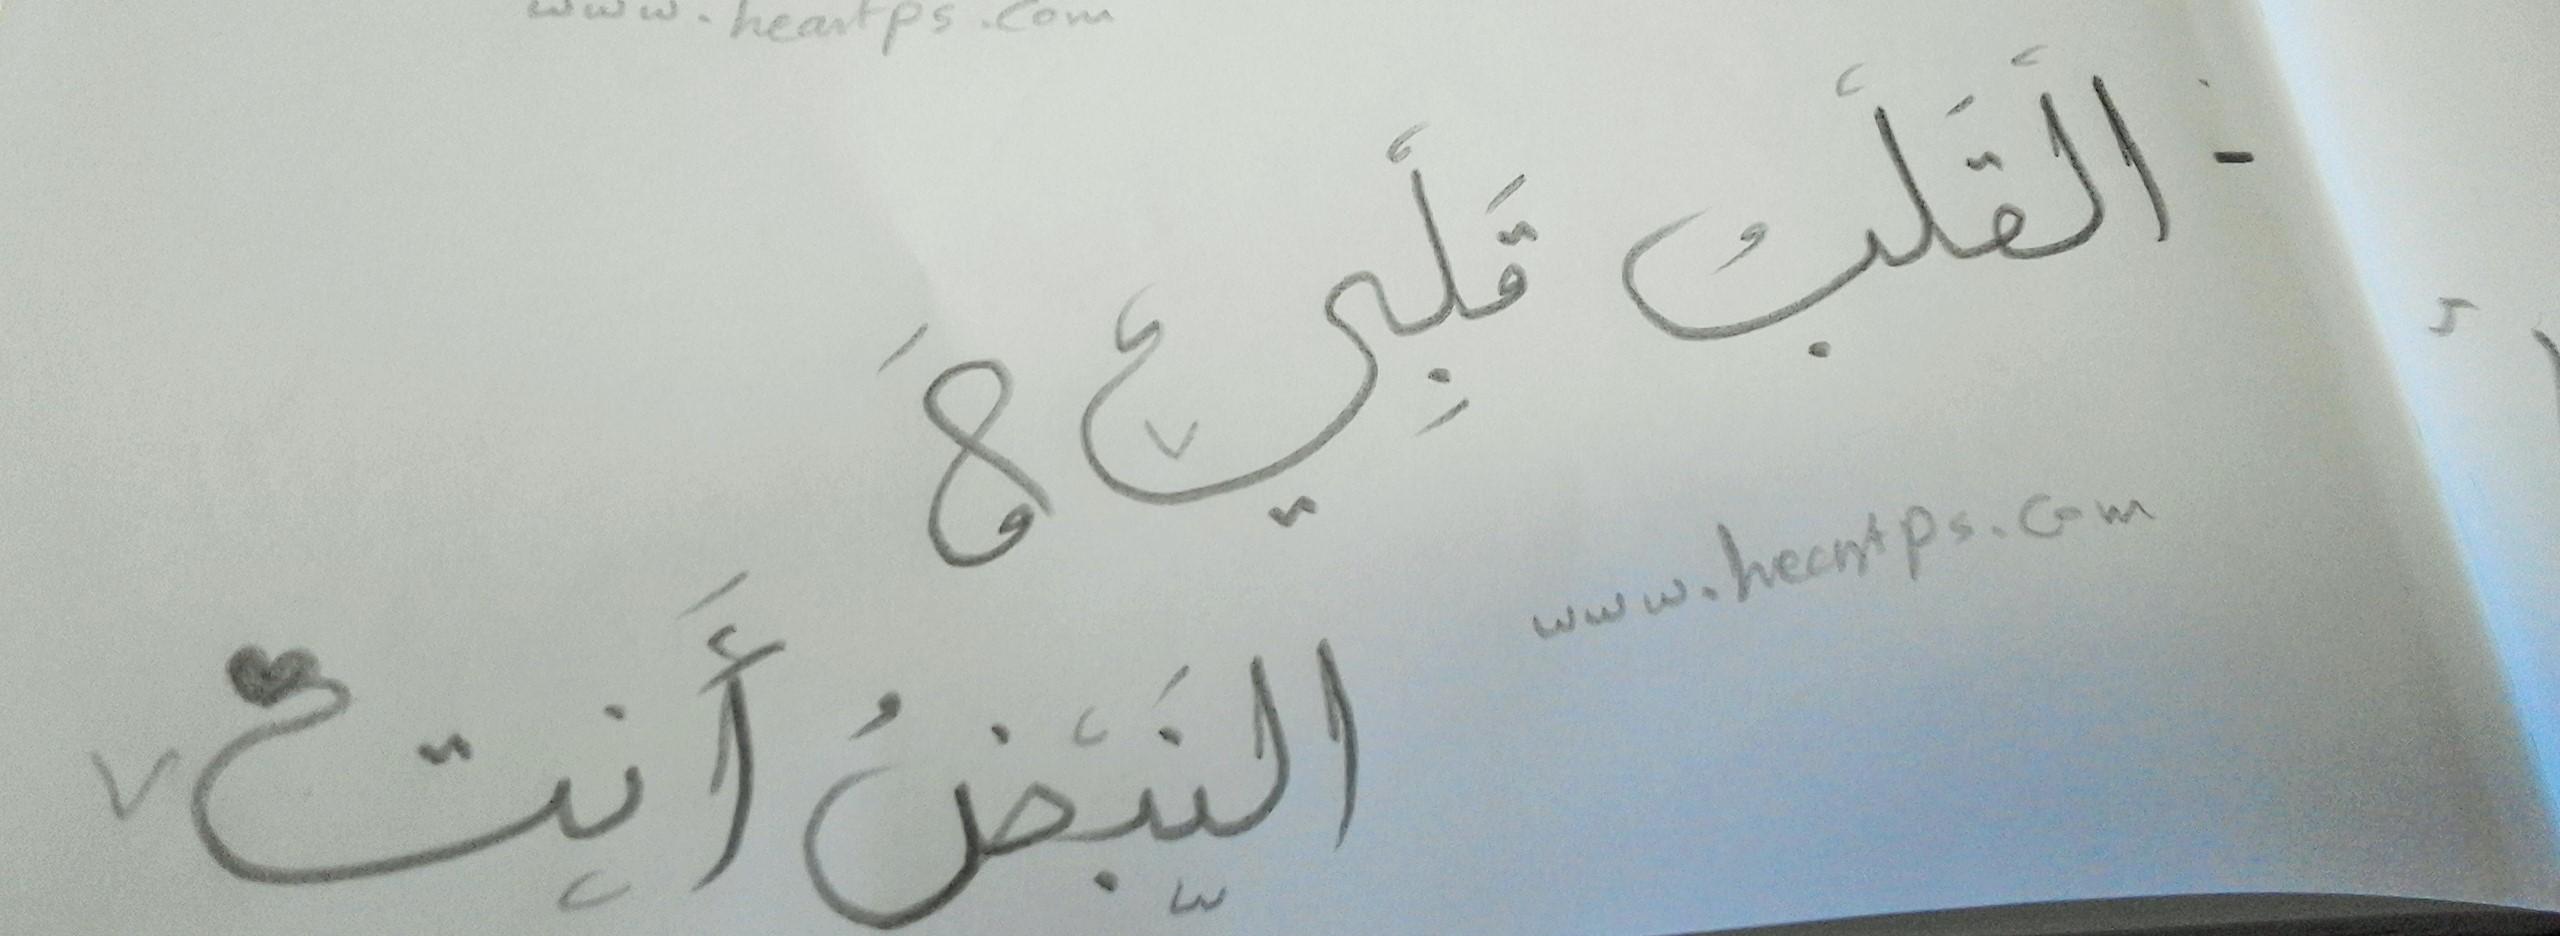 www.heartps.com
- الْقَلْبُ قَلْبِي وَ
www.heartps.com
النَّبْضُ أَنت